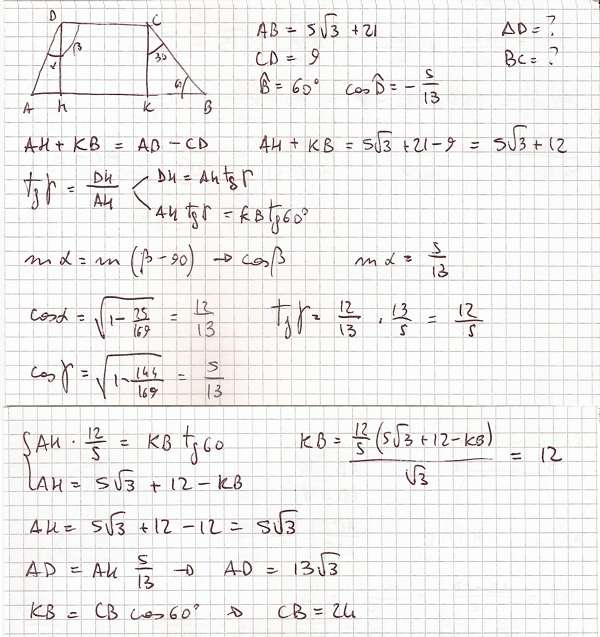 D C
β
α
30
60
A H K B
AB = 5√3 + 21 AD = ?
CD = 9 BC = ?
B̂ = 60° cos D̂ = - 5/13
AH + KB = AB - CD AH + KB = 5√3 + 21 - 9 = 5√3 + 12
tg γ = DH/AH
DH = AH tg γ
AH tg γ = KB tg 60°
sen α = sen (β - 90) → cos β sen α = 5/13
cos α = √(1 - 25/169) = 12/13 tg γ = 12/13 · 13/5 = 12/5
cos γ = √(1 - 144/169) = 5/13
{ AH · 12/5 = KB tg 60 KB = 12/5 (5√3 + 12 - KB) / √3 = 12
AH = 5√3 + 12 - KB
AH = 5√3 + 12 - 12 = 5√3
AD = AH 5/13 → AD = 13√3
KB = CB cos 60° → CB = 24